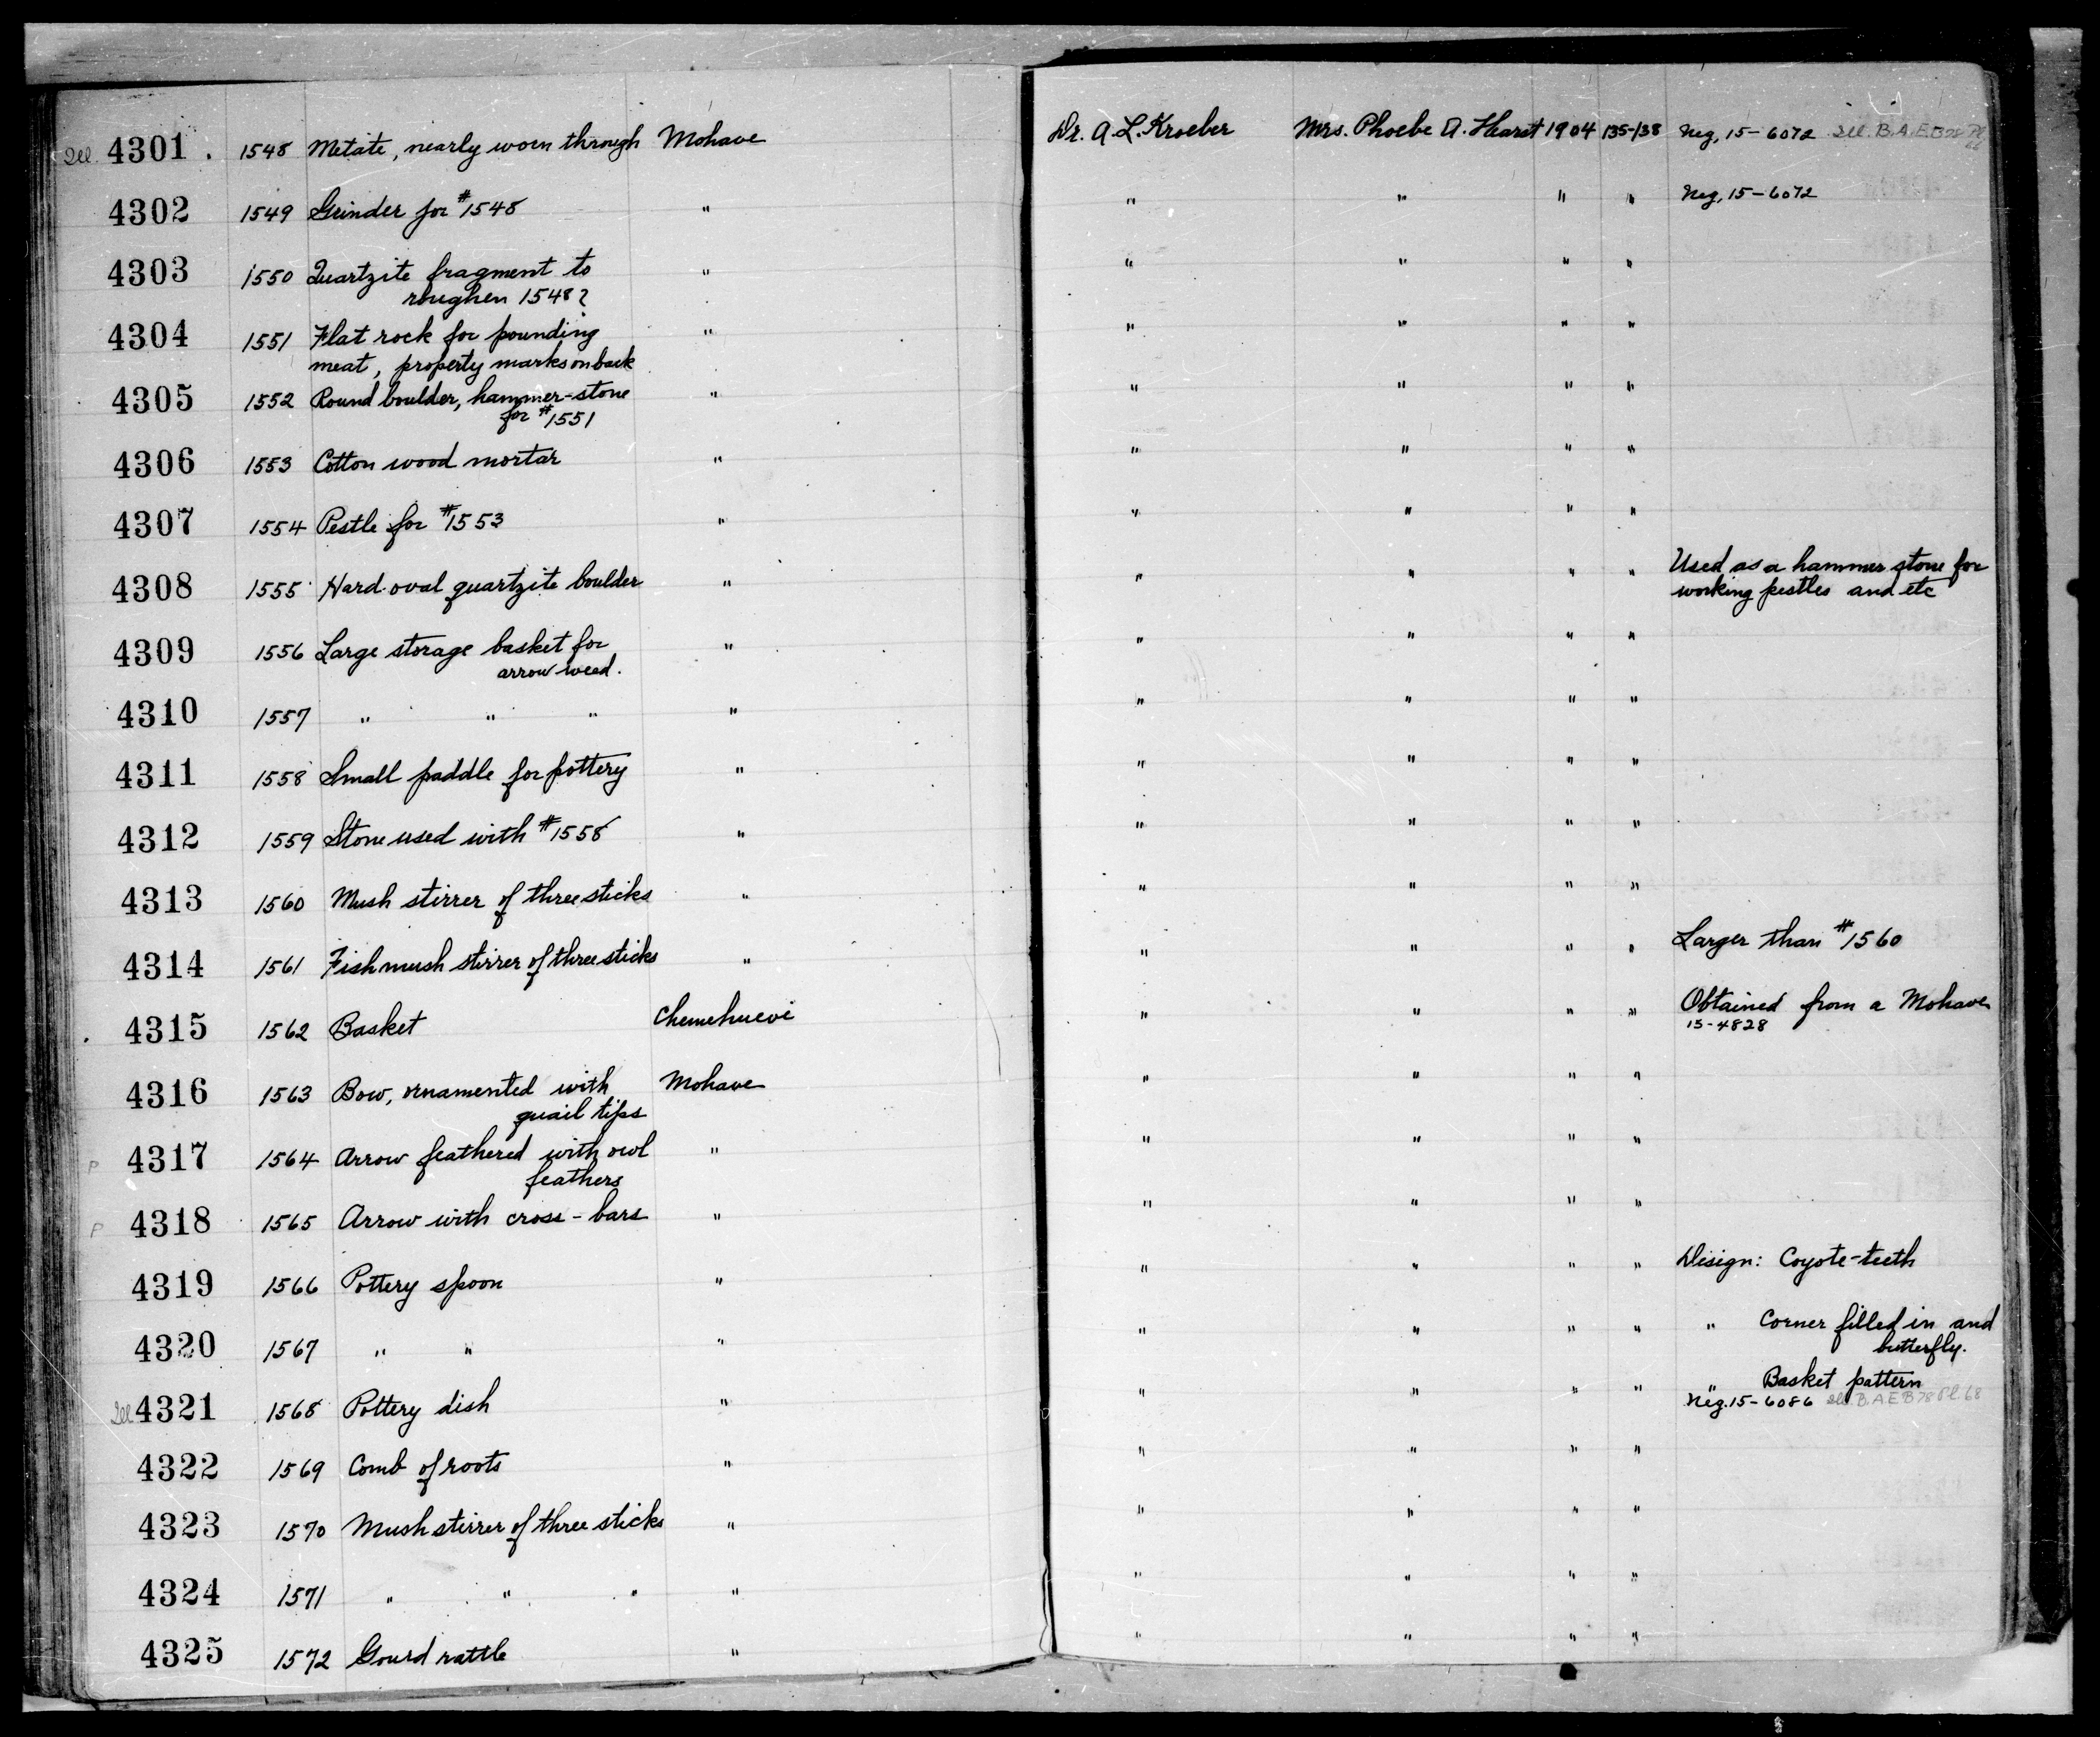 Ill. 4301 . 1548 Metate, nearly worn through Mohave Dr. A. L. Kroeber Mrs. Phoebe A. Hearst 1904 135-138 Neg. 15-6072 Ill. B.A.E.B78 Pl
4302 1549 Grinder for #1548 " " " " " Neg. 15-6072
4303 1550 Quartzite fragment to " " " " "
roughen 1548?
4304 1551 Flat rock for pounding " " " " "
meat, property marks on back
4305 1552 Round boulder, hammer-stone " " " " "
for #1551
4306 1553 Cotton wood mortar " " " " "
4307 1554 Pestle for #1553 " " " " "
4308 1555 Hard oval quartzite boulder " " " " " Used as a hammer stone for
working pestles and etc
4309 1556 Large storage basket for " " " " "
arrow weed.
4310 1557 " " " " " " " "
4311 1558 Small paddle for pottery " " " " "
4312 1559 Stone used with #1558 " " " " "
4313 1560 Mush stirrer of three sticks " " " " "
4314 1561 Fish mush stirrer of three sticks " " " " " Larger than #1560
4315 1562 Basket Chemehuevi " " " " Obtained from a Mohave
15-4828
4316 1563 Bow, ornamented with Mohave " " " "
quail tips
P 4317 1564 Arrow feathered with owl " " " " "
feathers
P 4318 1565 Arrow with cross-bars " " " " "
4319 1566 Pottery spoon " " " " " Design: Coyote-teeth
4320 1567 " " " " " " " " Corner filled in and
butterfly.
Ill 4321 1568 Pottery dish " " " " " " Basket pattern
Neg. 15-6086 Ill. B.A.E B78 Pl. 68
4322 1569 Comb of roots " " " " "
4323 1570 Mush stirrer of three sticks " " " " "
4324 1571 " " " " " " " "
4325 1572 Gourd rattle " " " " "